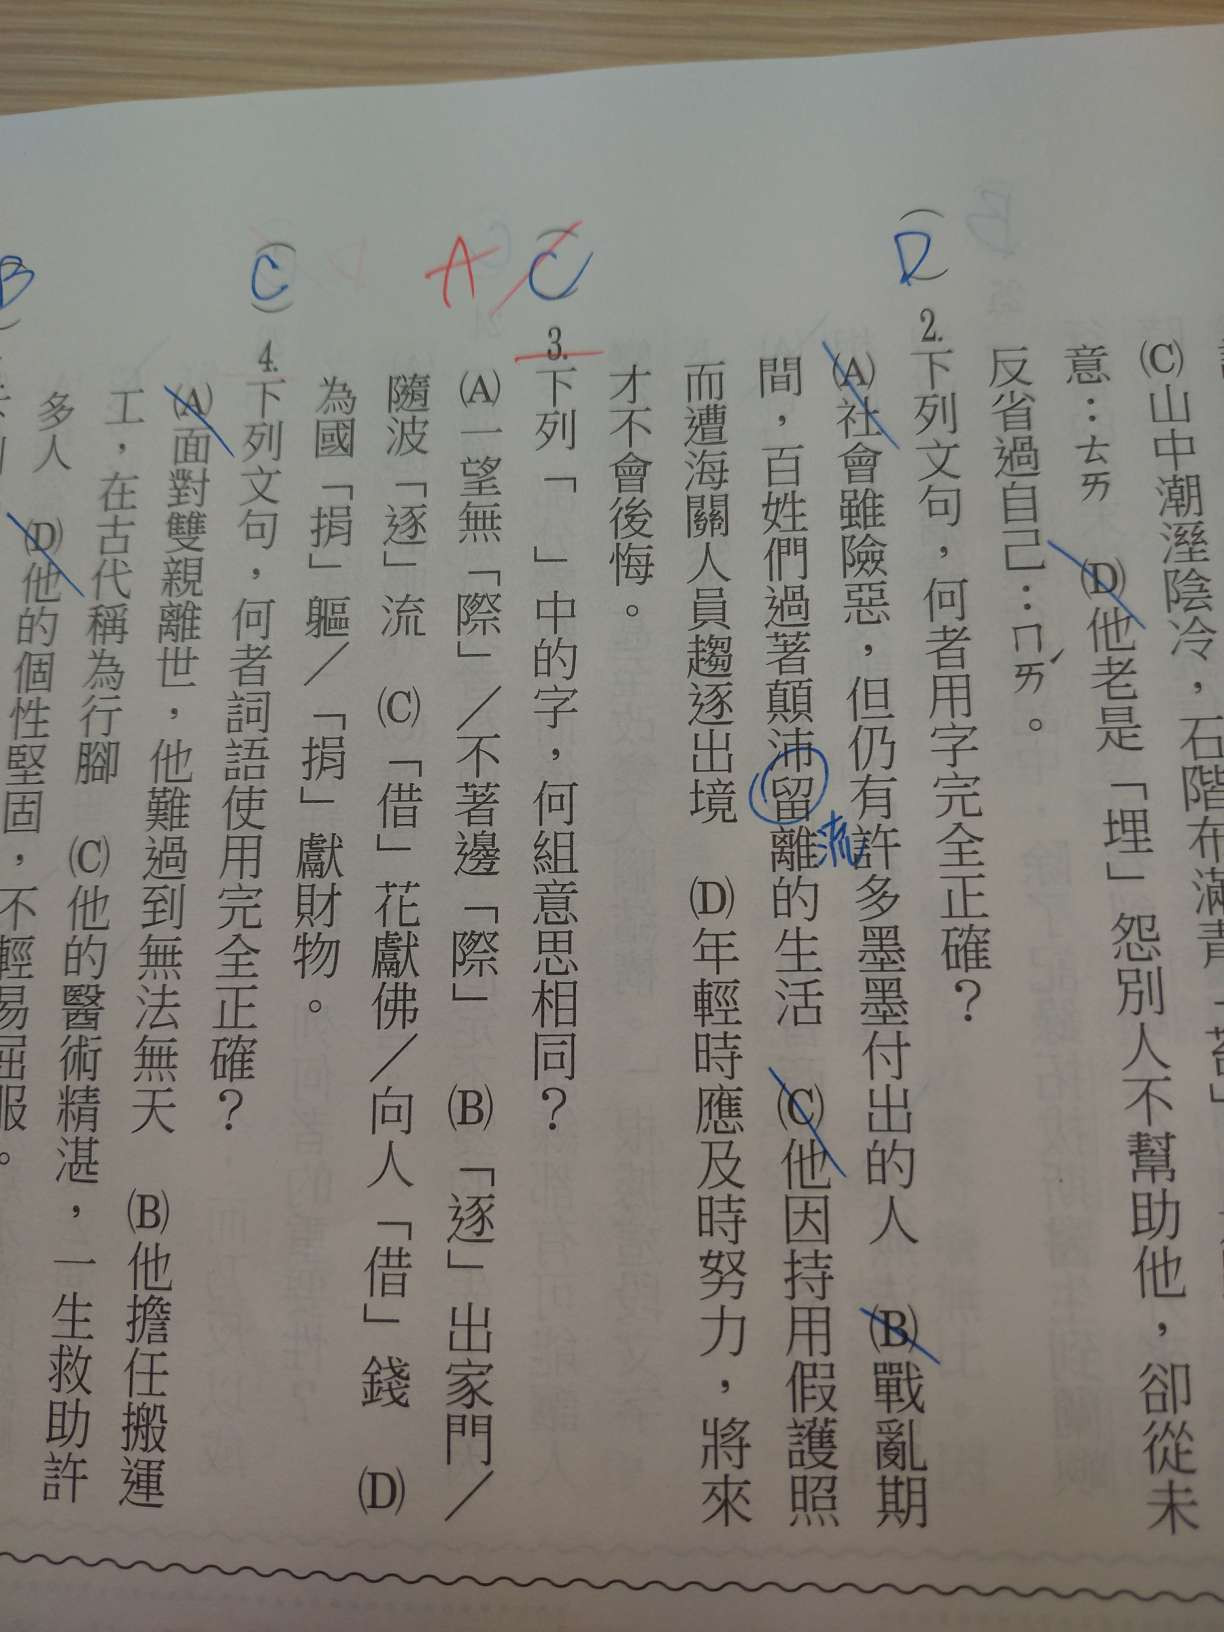 (C)山中潮溼陰冷，石階布滿青「苔」
意：ㄊㄞ　(D)他老是「埋」怨別人不幫助他，卻從未
反省過自己：ㄇㄞˊ。
(D)2.下列文句，何者用字完全正確？
(A)社會雖險惡，但仍有許多墨墨付出的人　(B)戰亂期
間，百姓們過著顛沛留離的生活　(C)他因持用假護照
流
而遭海關人員趨逐出境　(D)年輕時應及時努力，將來
才不會後悔。
A (C)3.下列「　」中的字，何組意思相同？
(A)一望無「際」／不著邊「際」　(B)「逐」出家門／
隨波「逐」流　(C)「借」花獻佛／向人「借」錢　(D)
為國「捐」軀／「捐」獻財物。
(C)4.下列文句，何者詞語使用完全正確？
(A)面對雙親離世，他難過到無法無天　(B)他擔任搬運
工，在古代稱為行腳　(C)他的醫術精湛，一生救助許
多人　(D)他的個性堅固，不輕易屈服。
B